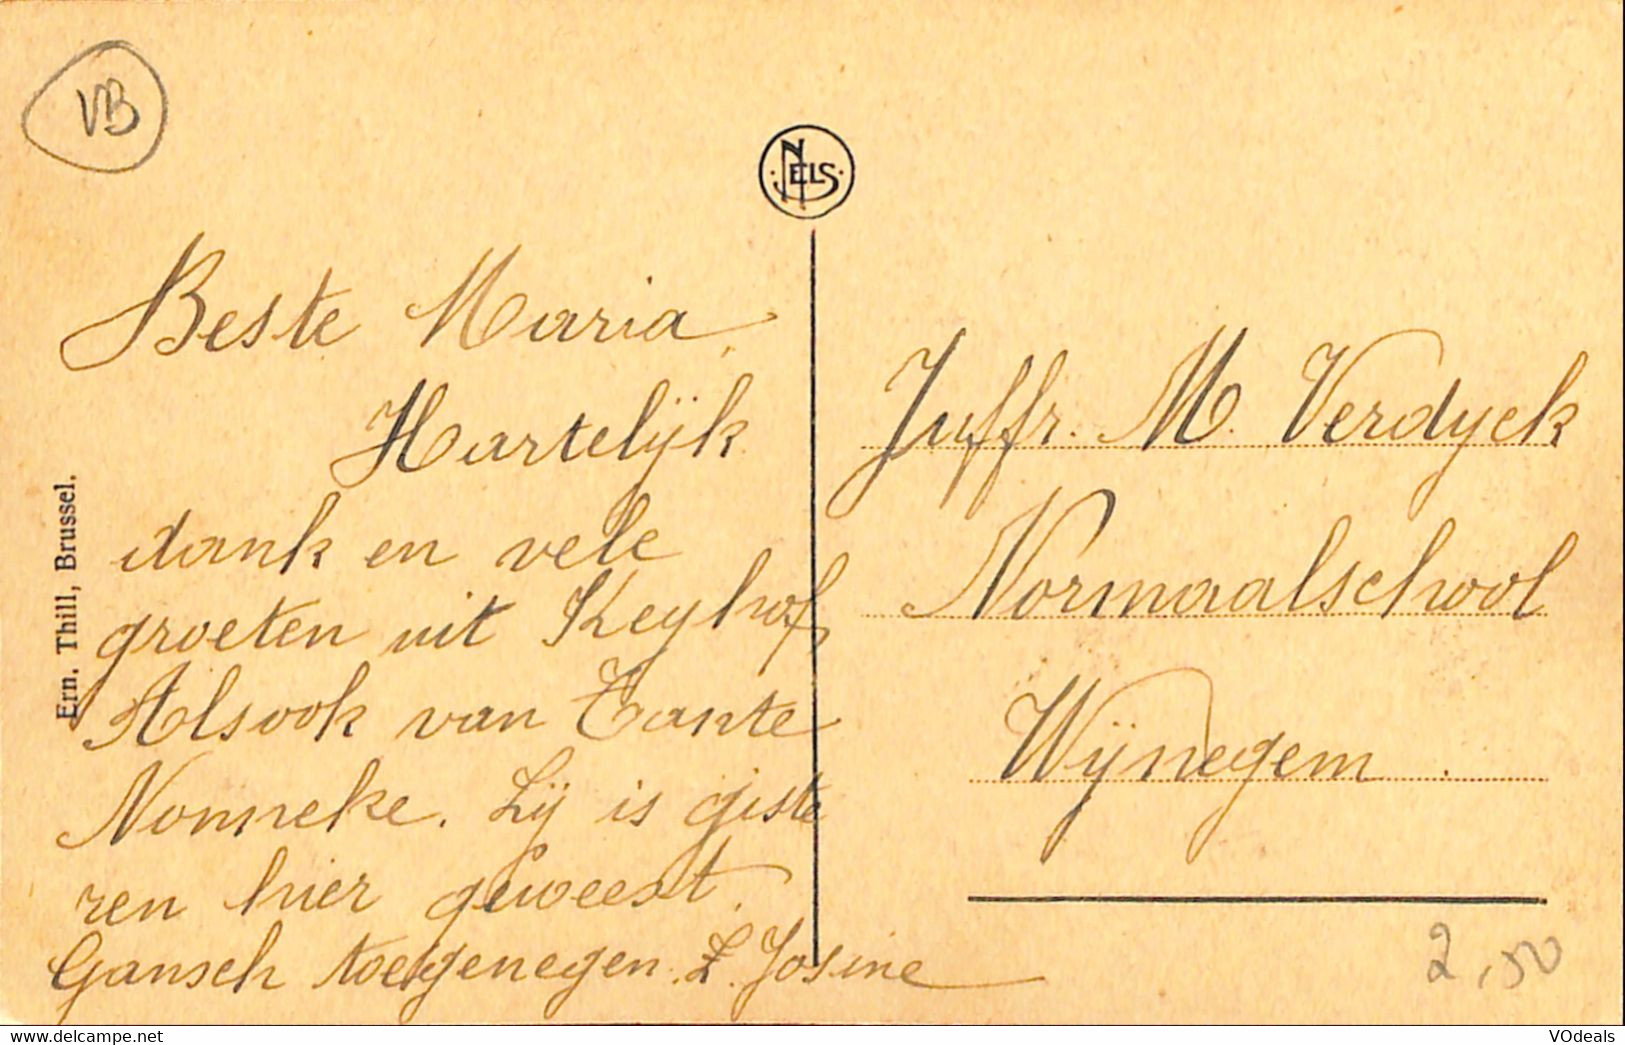 VB
NELS
Beste Maria,
Hartelijk
dank en vele
groeten uit Keyhof,
Alsook van Tante
Nonneke. Zij is giste
ren hier geweest.
Gansch toegenegen Z. Josine
Ern. Thill, Brussel.
Juffr. M. Verdyck
Normaalschool
Wijnegem.
2,50
delcampe.net
VOdeals